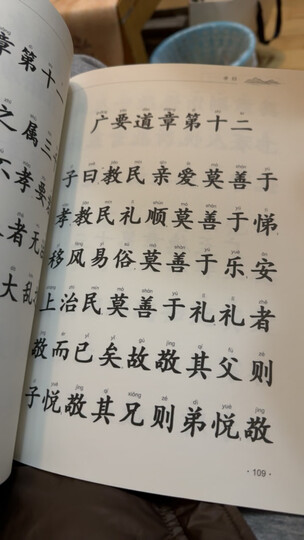 章第十一
之属三
不孝要
者无
大乱
孝经
广要道章第十二
子曰教民亲爱莫善于
孝教民礼顺莫善于悌
移风易俗莫善于乐安
上治民莫善于礼礼者
敬而已矣故敬其父则
子悦敬其兄则弟悦敬
·109·